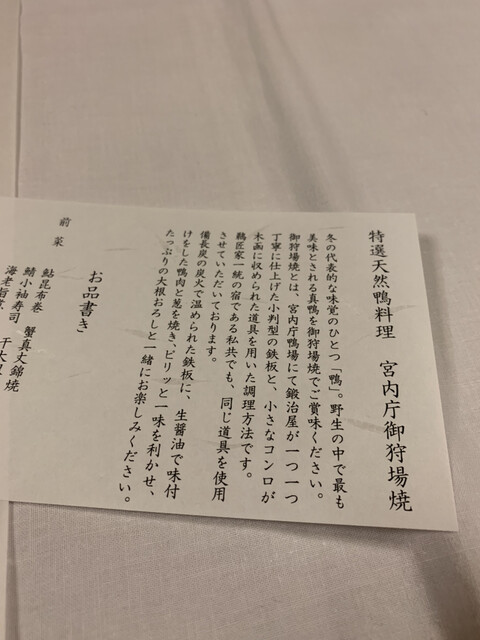 特選天然鴨料理　宮内庁御狩場焼
冬の代表的な味覚のひとつ「鴨」。野生の中で最も
美味とされる真鴨を御狩場焼でご賞味ください。
御狩場焼とは、宮内庁鴨場にて鍛治屋が一つ一つ
丁寧に仕上げた小判型の鉄板と、小さなコンロが
木函に収められた道具を用いた調理方法です。
鵜匠家一統の宿である私共でも、同じ道具を使用
させていただいております。
備長炭の炭火で温められた鉄板に、生醤油で味付
けをした鴨肉と葱を焼き、ピリッと一味を利かせ、
たっぷりの大根おろしと一緒にお楽しみください。
お品書き
前菜
鮎昆布巻　蟹真丈錦焼
鯖小袖寿司
海老旨煮